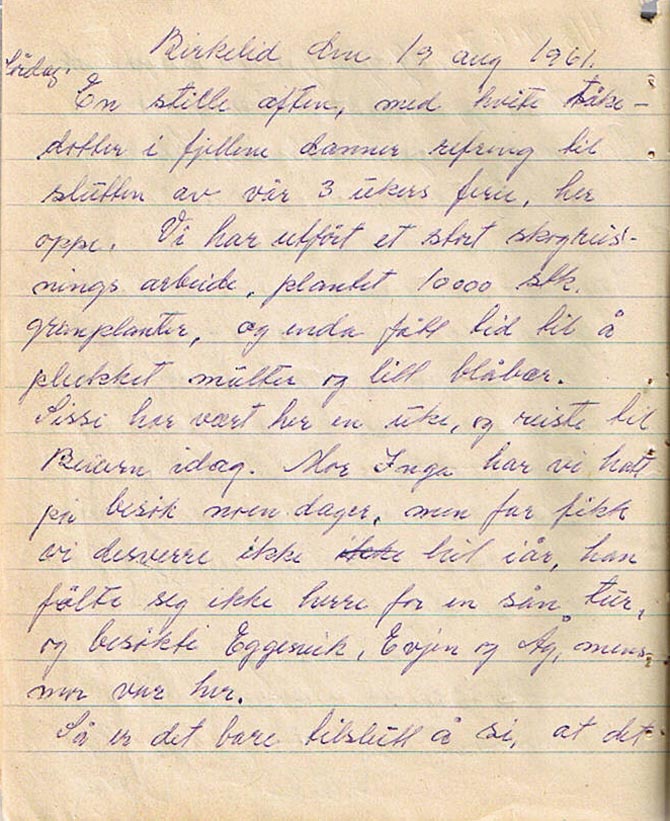 Birkelid den 19 aug 1961.
Lördag.
En stille aften, med hvite tåke-
dotter i fjellene danner refreng til
slutten av vår 3 ukers ferie, her
oppe. Vi har utfört et stort skogreis-
nings arbeide, plantet 10000 stk.
granplanter, og enda fått tid til å
plukket multer og litt blåbær.
Sissi har vært her en uke, og reiste til
Beiarn idag. Mor Inga har vi hatt
på besök noen dager, men far fikk
vi desverre ikke ikke hit iår, han
fölte seg ikke herre for en sån tur,
og besökte Eggesvik, Evjen og Åg, mens
mor var her.
Så er det bare tilslutt å si, at det